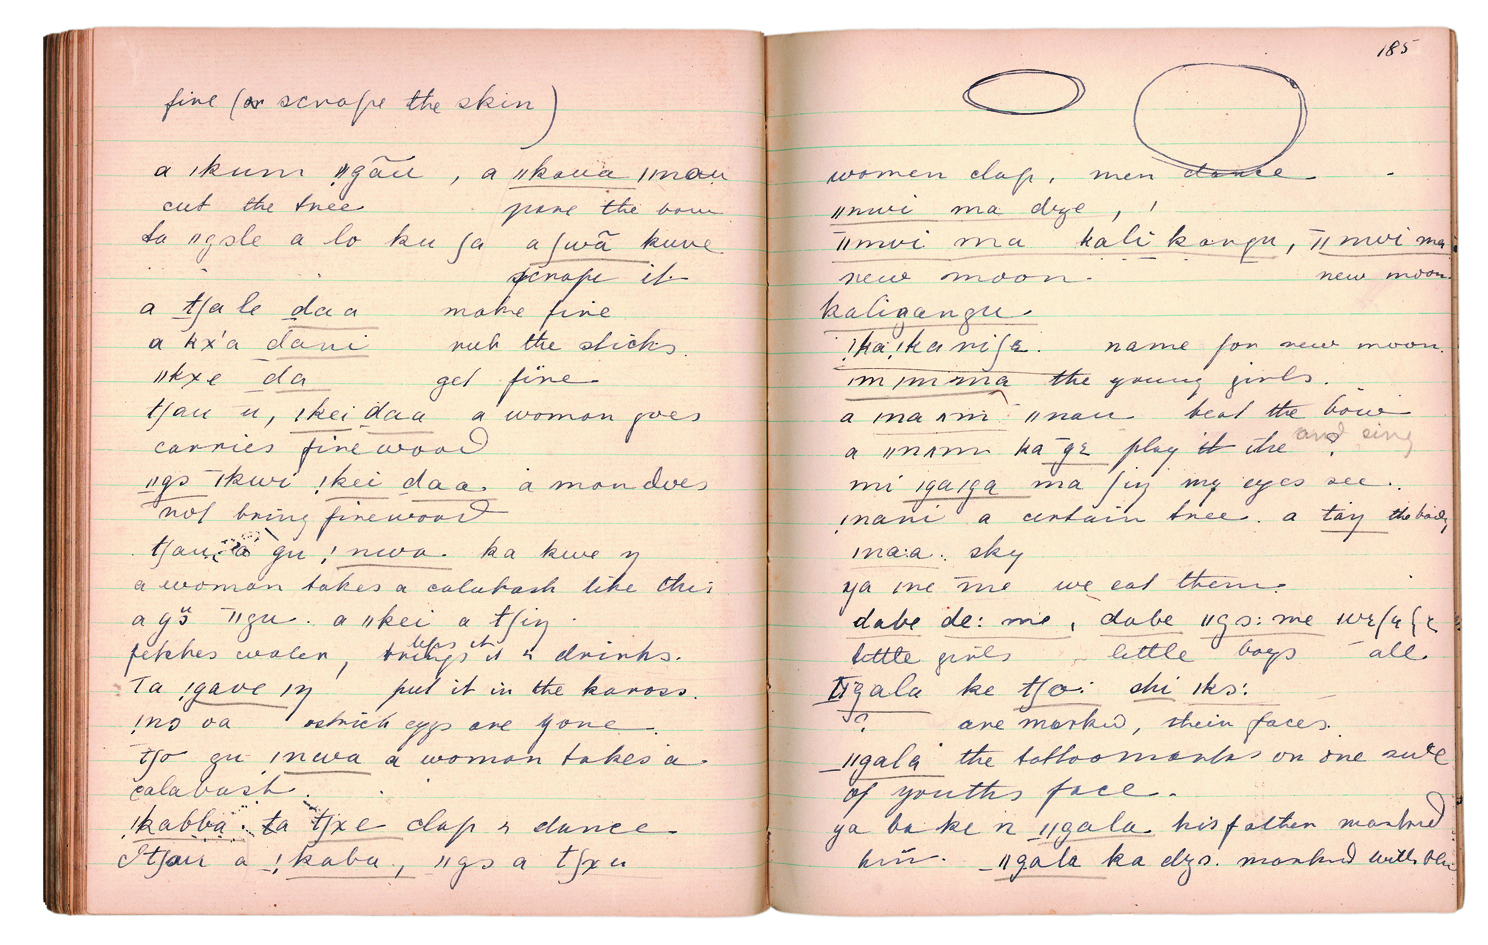 fire (or scrape the skin)
a ǀkum ǁgãu, a ǁkaua ǀnau
cut the tree pare the bow
ta ǁgɔle a lo ku ʃa a ʃwã kuve
scrape it
a tʃale daa make fire
a kx'a dani rub the sticks.
ǁkxe da get fire
tʃau u, ǀkei daa a woman goes
carries firewood
ǁgɔ ǀkwi ǃkei daa. a man does
not bring firewood
tʃau, gu ǃnwa. ka kwe ŋ
a woman takes a calabash like this
ǁgu. a ǁkei a tʃiŋ.
fetches water, brings it & drinks.
Ta ǃgave ŋ put it in the kaross.
ǃnɔ oa ostrich eggs are gone
tʃo gu ǀnwa a woman takes a
calabash.
ǃkabba. ta tʃxe clap & dance
tʃau a ǃkaba, ǁgɔ a tʃxu
185
women clap, men dance
ǁnwi ma dze, !
ǁnwi ma kali kangu, ǁnwi ma
new moon. new moon.
kaligangu.
ǃkaǃkaniʃɛ. name for new moon.
the young girls.
a ma ǁnau beat the bow
a ka gɛ play it the ? and sing
mi ǀgaǀga ma ʃiŋ my eyes see.
ǃnani a certain tree. a taŋ the body
ǀnaːa. sky
ya me we eat them.
dabe deː me, dabe ǁgɔːme
little girls little boys all
ǁgala ke tʃoː shi ǀkɔː
? are marked, their faces.
ǁgala the tattoomarks on one side
of youths face.
ya ba ke n ǁgala his father marked
him. ǁgala ka dzɔ. marked with